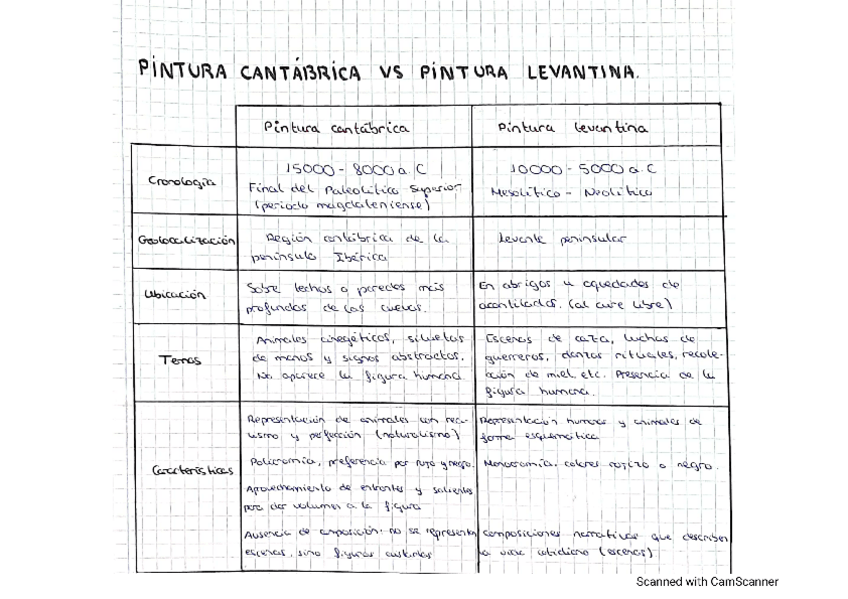 PINTURA CANTÁBRICA VS PINTURA LEVANTINA.
Pintura cantábrica
Pintura levantina
Cronología
15000 - 8000 a.C
Final del Paleolítico Superior
(periodo magdaleniense)
10000 - 5000 a.C
Mesolítico - Neolítico
Geolocalización
Región cantábrica de la
península Ibérica
Levante peninsular
Ubicación
Sobre techos o paredes más
profundas de las cuevas.
En abrigos u oquedades de
acantilados. (al aire libre)
Temas
Animales cinegéticos, siluetas
de manos y signos abstractos.
No aparece la figura humana
Escenas de caza, luchas de
guerreros, danzas rituales, recole-
cción de miel, etc. Presencia de la
figura humana.
Características
Representación de animales con rea-
lismo y perfección (naturalismo)
Policromía, preferencia por rojo y negro.
Aprovechamiento de entrantes y salientes
para dar volumen a la figura
Ausencia de composición: no se representan
escenas, sino figuras
Representación humana y animales de
forma esquemática
Monocromía, colores rojizo o negro.
Composiciones narrativas que describen
la vida cotidiana (escenas)
Scanned with CamScanner